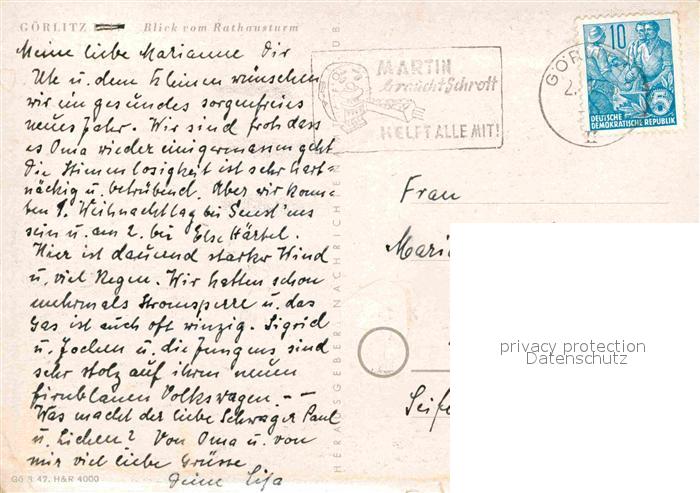 GÖRLITZ Blick vom Rathausturm
Meine liebe Marianne Dir
Ute u. dem Kleinen wünschen
wir ein gesundes sorgenfreies
neues Jahr. Wir sind froh dass
es Oma wieder einigermassen geht
Die Stimmlosigkeit ist sehr hart=
näckig u. betrübend. Aber wir konn=
ten 1. Weihnachttag bei
sein u. am 2. bei Else Härtel.
Hier ist dauernd starker Wind
u. viel Regen. Wir hatten schon
mehrmals Stromsperre u. das
Gas ist auch oft winzig. Sigrid
u. Jochen u. die Jungens sind
sehr stolz auf ihren neuen
firnblauen Volkswagen. --
Was macht der liebe Schwager Paul
u. Lichen? Von Oma u. von
mir viel liebe Grüsse
Deine Lisa
Gö 3 42. H&R 4000
HERAUSGEBER NACHRICHTEN
MARTIN
braucht Schrott
HELFT ALLE MIT!
10
5
DEUTSCHE
DEMOKRATISCHE REPUBLIK
Frau
Mari
Seife
privacy protection
Datenschutz